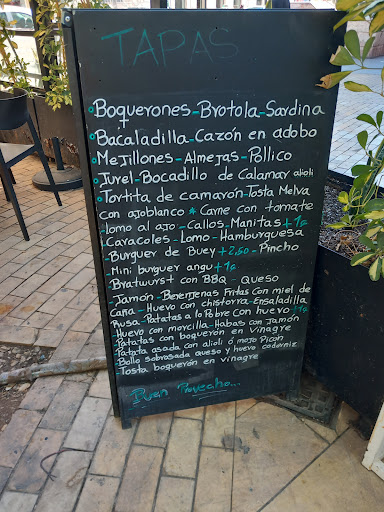 TAPAS
Boquerones - Brotola - Sardina
Bacaladilla - Cazón en adobo
Mejillones - Almejas - Pollico
Jurel - Bocadillo de Calamar alioli
Tortita de camarón - Tosta Melva
con ajoblanco * Carne con tomate
lomo al ajo - Callos - Manitas +1€
Caracoles - Lomo - Hamburguesa
Burguer de Buey +2,50 - Pincho
Mini burguer angu +1€
Bratwurst con BBQ - Queso
Jamón - Berenjenas Fritas con miel de
Caña - Huevo con chistorra - Ensaladilla
Rusa - Patatas a lo Pobre con huevo +1€
Huevo con morcilla - Habas con Jamón
Patatas con boquerón en vinagre
Patata asada con alioli ó mojo Picón
Bollo sobrasada queso y huevo codorniz
Tosta boquerón en vinagre
Buen Provecho...